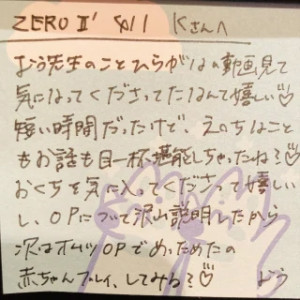 ZERO II' 8/11 Kさんへ
よう先生のことひらがなの動画見て
気になってくださってたなんて嬉しい♡
短い時間だったけど、えっちなこと
もお話も目一杯堪能しちゃったね?♡
おくちを気に入ってくださって嬉しい
し、OPについて沢山説明したから
次はオムツOPでめっためたの
赤ちゃんプレイ、してみる?♡ よう